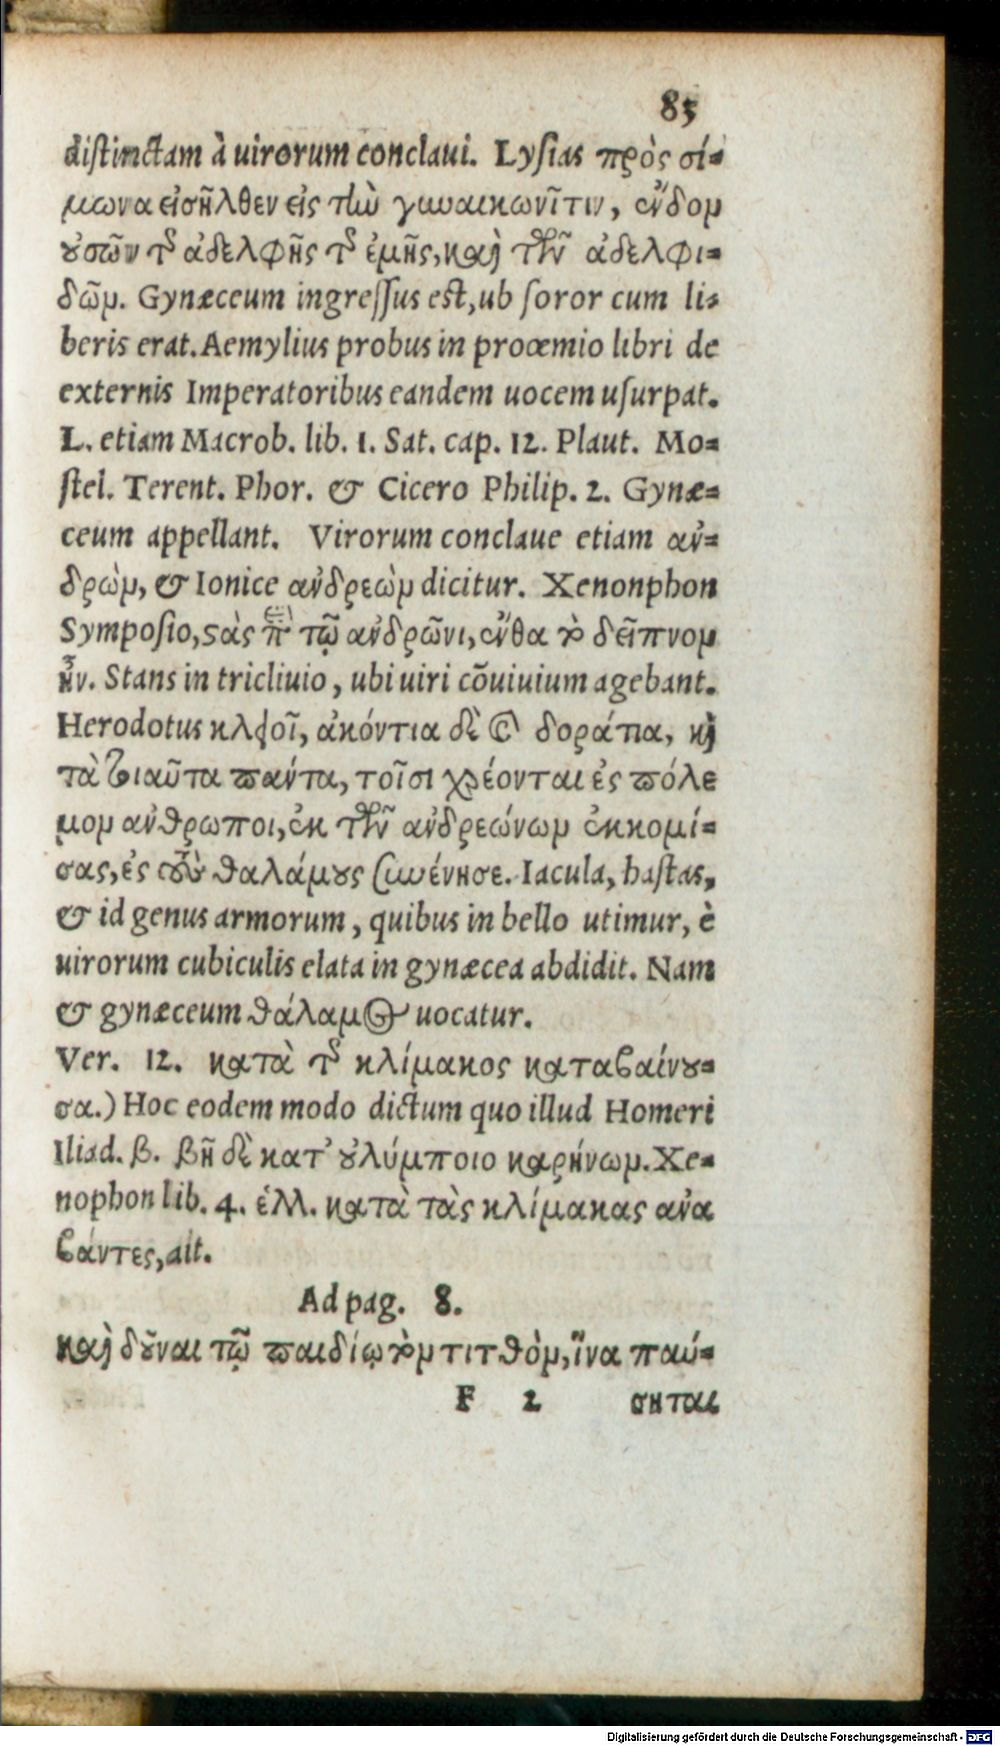 85
distinctam à uirorum conclaui. Lysias πρὸς σί-
μωνα εἰσῆλθεν εἰς τὴν γυναικωνῖτιν, ἔνδομ
οὐσῶν τῆς ἀδελφῆς τῆς ἐμῆς, καὶ τῶν ἀδελφι-
δῶμ. Gynæceum ingressus est, ub soror cum li-
beris erat. Aemylius probus in proœmio libri de
externis Imperatoribus eandem uocem usurpat.
L. etiam Macrob. lib. 1. Sat. cap. 12. Plaut. Mo-
stel. Terent. Phor. & Cicero Philip. 2. Gynæ-
ceum appellant. Virorum conclaue etiam ἀν-
δρὼμ, & Ionice ἀνδρεὼμ dicitur. Xenonphon
Symposio, στὰς τῷ ἀνδρῶνι, ἔνθα τὸ δεῖπνομ
ἦν. Stans in tricliuio, ubi uiri cōuiuium agebant.
Herodotus κλφοῖ, ἀκόντια δὲ καὶ δοράτια, καὶ
τὰ τοιαῦτα πάντα, τοῖσι χρέονται ἐς πόλε
μομ ἄνθρωποι, ἐκ τῶν ἀνδρεώνωμ ἐκκομί-
σας, ἐς τοὺς θαλάμους συνένησε. Iacula, hastas,
& id genus armorum, quibus in bello utimur, è
uirorum cubiculis elata in gynæcea abdidit. Nam
& gynæceum θάλαμος uocatur.
Ver. 12. κατὰ τῆς κλίμακος καταβαίνου-
σα.) Hoc eodem modo dictum quo illud Homeri
Iliad. β. βῆ δὲ κατ' οὐλύμποιο καρήνωμ. Xe-
nophon lib. 4. ἑλλ. κατὰ τὰς κλίμακας ἀνα
βάντες, ait.
Ad pag. 8.
καὶ δοῦναι τῷ παιδίῳ τὸμ τιτθὸμ, ἵνα παύ-
F 2 σηται
Digitalisierung gefördert durch die Deutsche Forschungsgemeinschaft - DFG